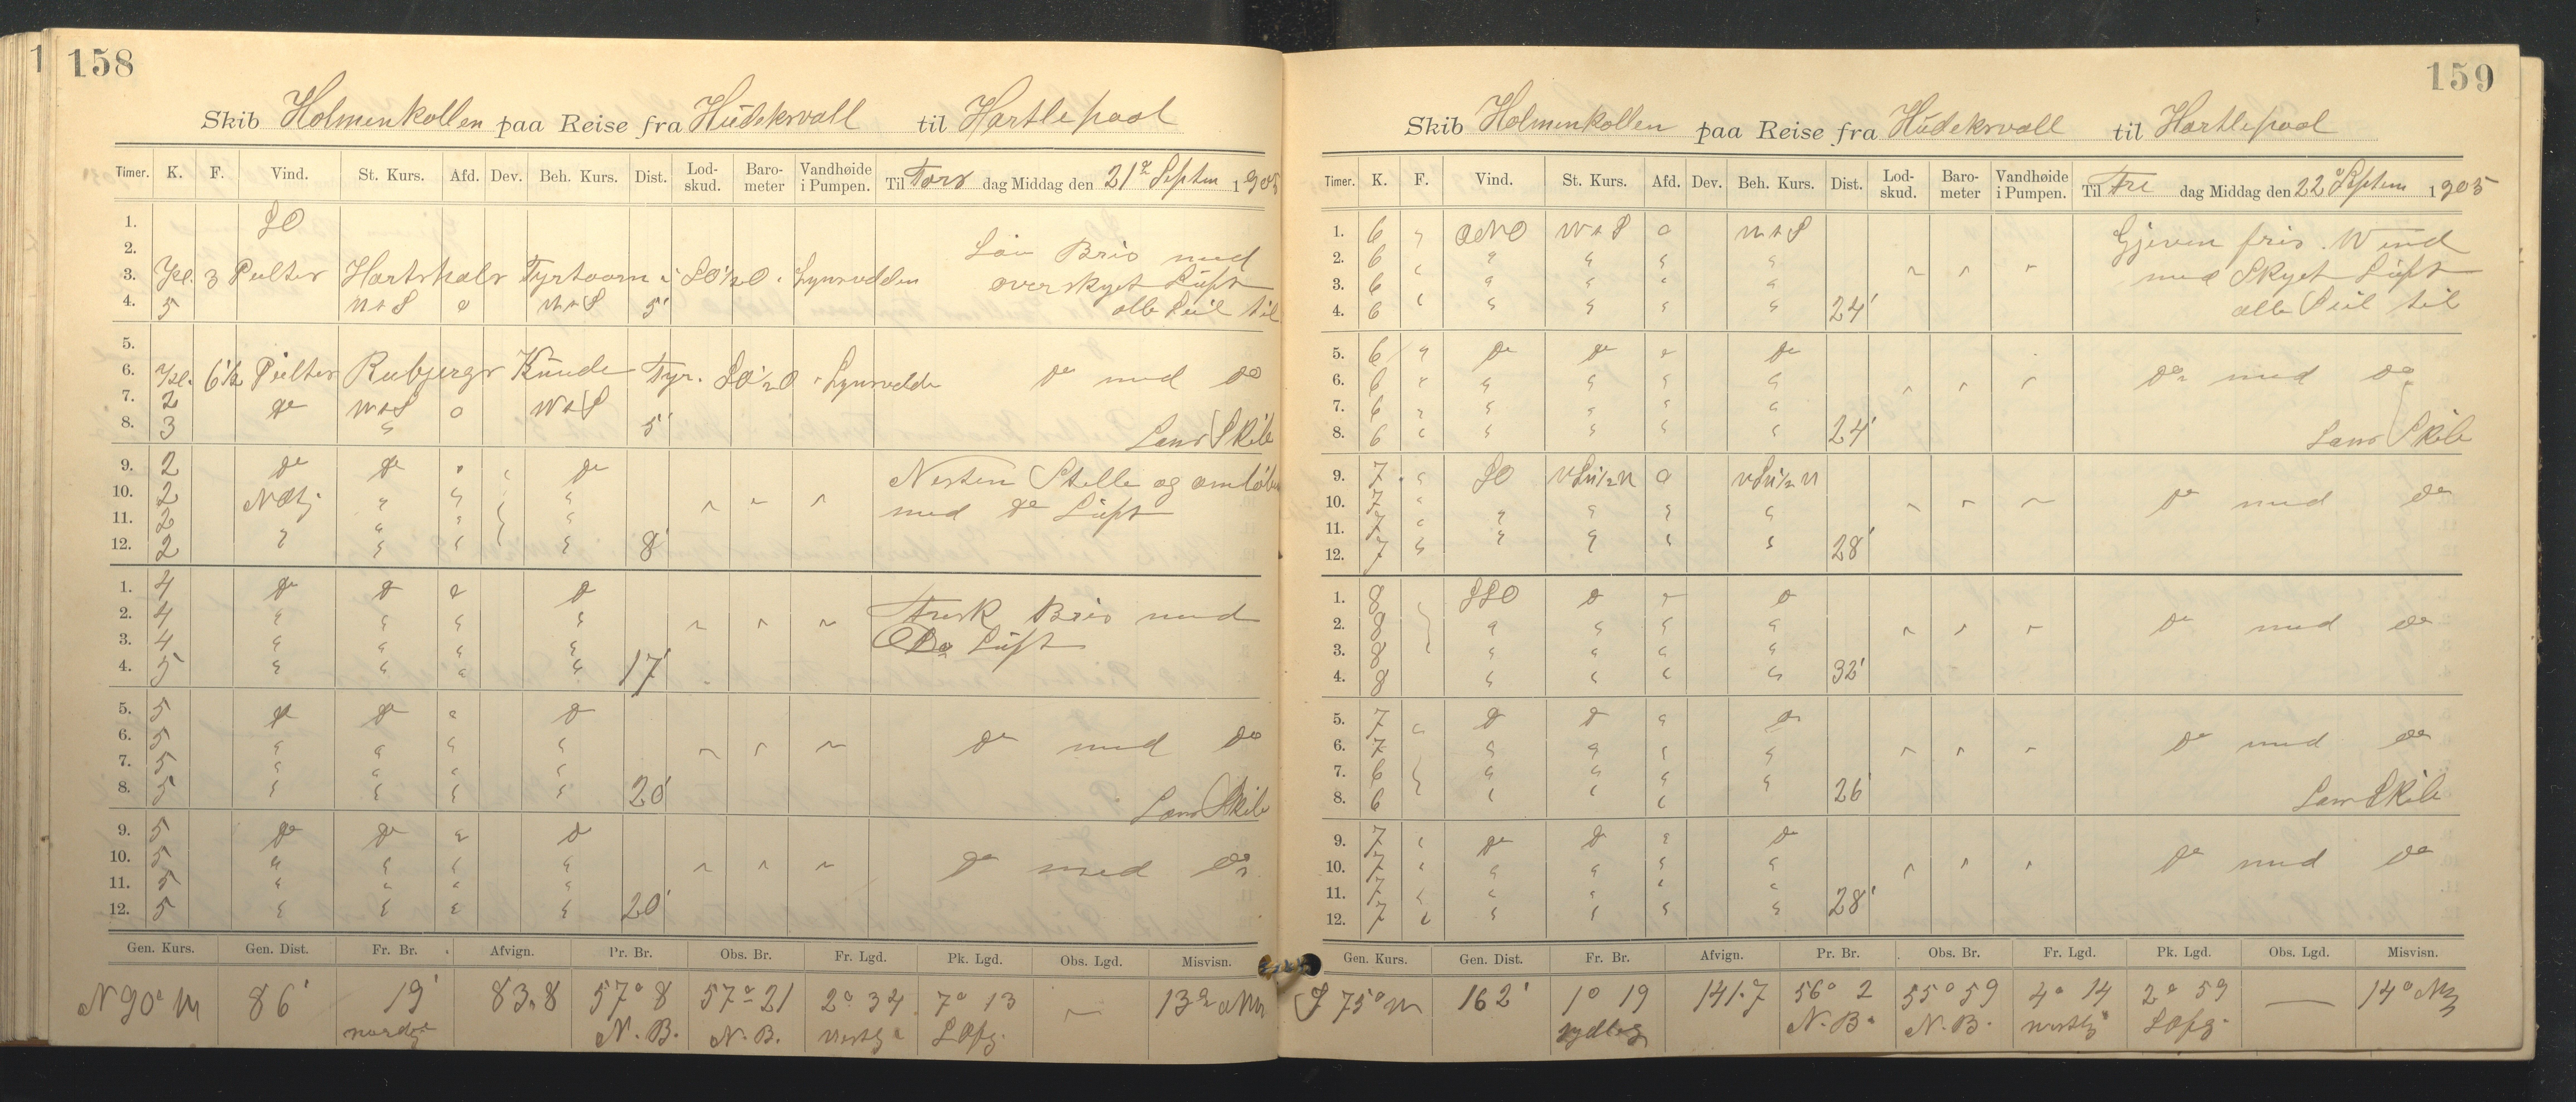 158
Skib Holmenkollen paa Reise fra Hudeksvall til Hartlepool
Timer. K. F. Vind. St. Kurs. Afd. Dev. Beh. Kurs. Dist. Lod-skud. Baro-meter Vandhøide i Pumpen. Til Tors dag Middag den 21de Septem 1905
1. SO
2. Lav Bris med
3. Kl. 3 Peilter Hartshals Fyrtaarn i SO½O Lynsvidden overskyet Luft
4. 5 W t S 0 W t S 5' alle Seil til
5.
6. Kl. 6½ Peilter Rubjergs Knude Fyr. SO½O Lynsvidde do med do
7. 2 do W t S 0 W t S
8. 3 " 5' Lans Skib
9. 2 do do " do Nesten Stille og omløben
10. 2 " " " med do Luft
11. 2 " " "
12. 2 " " " " 8'
1. 4 do do do do Frisk Bris med
2. 4 " " " " Do Luft
3. 4 " " " "
4. 5 " " " " 17'
5. 5 do do " do
6. 5 " " " " do med do
7. 5 " " " "
8. 5 " " " " 20' Lans Skib
9. 5 do do " do
10. 5 " " " " do med do
11. 5 " " " "
12. 5 " " " " 20'
Gen. Kurs. Gen. Dist. Fr. Br. Afvign. Pr. Br. Obs. Br. Fr. Lgd. Pk. Lgd. Obs. Lgd. Misvisn.
N 90° W 86' 19' 83,8 57° 8 57° 21 2° 34 7° 13 — 13°
N. B. N. B.
159
Skib Holmenkollen paa Reise fra Hudeksvall til Hartlepool
Timer. K. F. Vind. St. Kurs. Afd. Dev. Beh. Kurs. Dist. Lod-skud. Baro-meter Vandhøide i Pumpen. Til Fre dag Middag den 22de Septem 1905
1. 6 " ONO W t S 0 W t S Gjeven fris Wind
2. 6 " " " " " med Skyet Luft
3. 6 " " " " "
4. 6 " " " " " 24' alle Seil til
5. 6 " do do " do
6. 6 " " " " " do med do
7. 6 " " " " "
8. 6 " " " " " 24' Lans Skib
9. 7 " SO 0
10. 7 " do med do
11. 7 " " " " "
12. 7 " " " " " 28'
1. 8 SSO do " do
2. 8 " " " " do med do
3. 8 " " " "
4. 8 " " " " 32'
5. 7 " do do " do
6. 7 " " " " do med do
7. 6 " " " "
8. 6 " " " 26 Lans Skib
9. 7 " do do " do
10. 7 " " " " " do med do
11. 7 " " " " "
12. 7 " " " " " 28'
Gen. Kurs. Gen. Dist. Fr. Br. Afvign. Pr. Br. Obs. Br. Fr. Lgd. Pk. Lgd. Obs. Lgd. Misvisn.
S 75° W 162' 1° 19 141.7 56° 2 55° 59 4° 14 2° 59 — 14°
sydlig N. B. N. B. vestlig